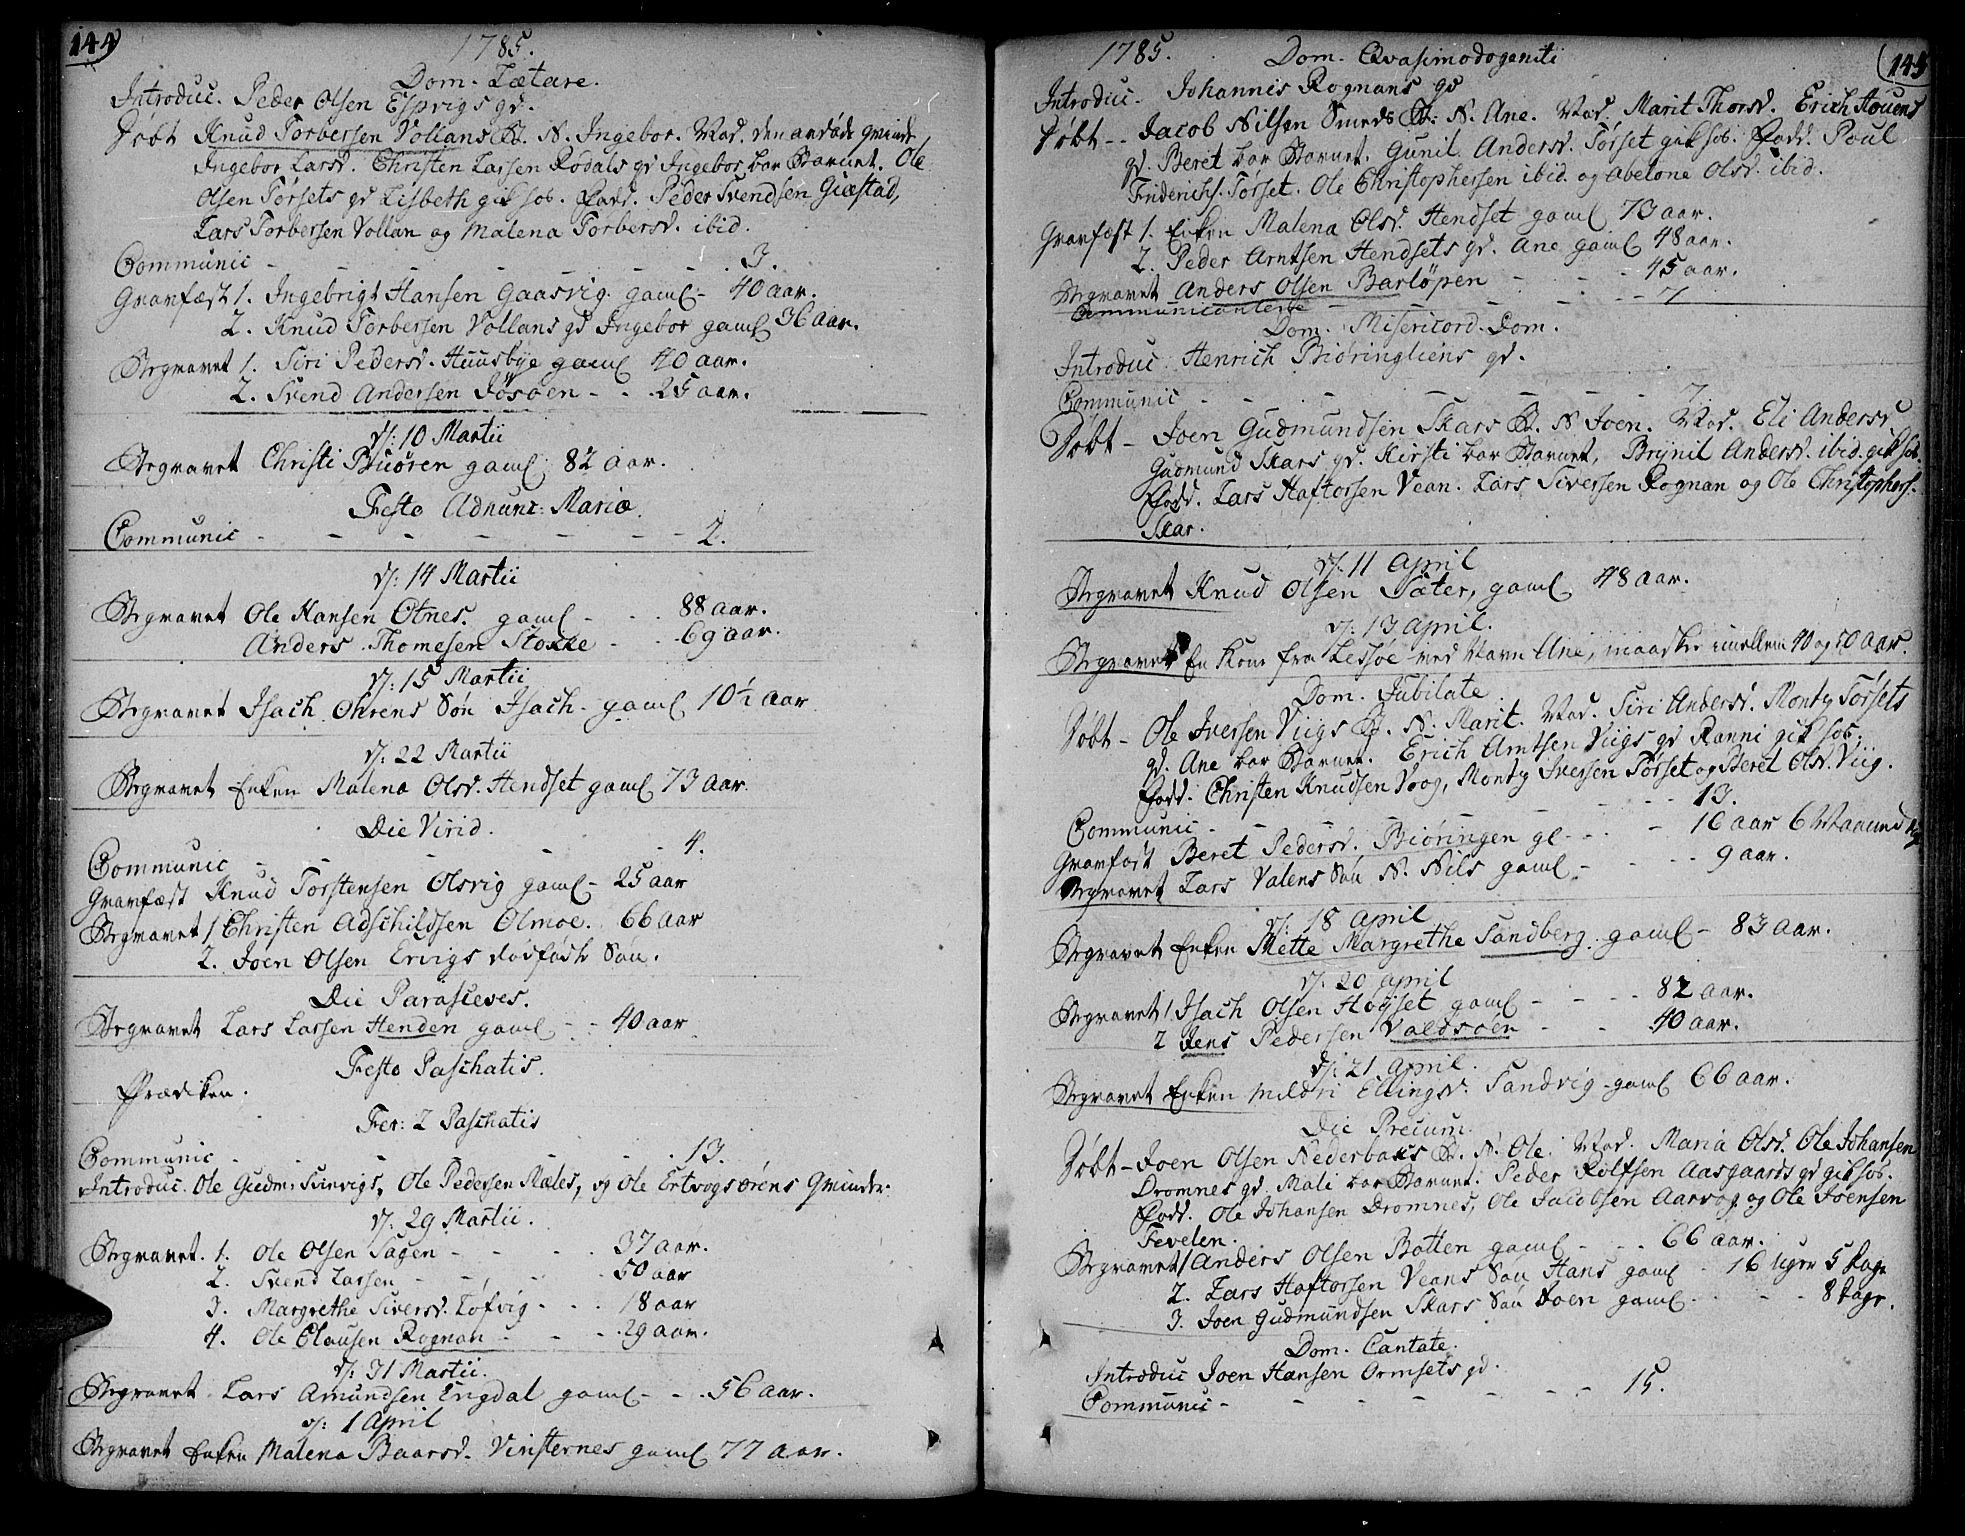 144
1785.
Dom. Lætare.
Introduc. Peder Olsen Espvigs qd.
Døbt Knud Torbersen Vollans B. N. Ingebor. Mad. den anden Qvinde
Ingebor Larsd. Christen Larsen Rodals qd Ingebor bar Barnet. Ole
Olsen Torsets qd Lisbeth gik hos. Fadd. Peder Svendsen Giæstad,
Lars Torbersen Vollan og Malena Torbersd. ibid.
Communic - - - - - - 3.
Gravfæst 1. Ingebrigt Hansen Gaasvig gaml - 40 aar.
2. Knud Torbersen Vollans qd Ingebor gaml 36 aar.
Begravet 1. Siri Pedersd. Huusbye gaml 40 aar.
2. Svend Andersen Jøsøen - - 25 aar.
d/: 10 Martii
Begravet Christi Buøren gaml 82 aar.
Festo Adnunc: Mariæ
Communic - - - - - - 2.
d/: 14 Martii
Begravet Ole Hansen Otnes. gaml - - 88 aar.
Anders Thomesen Stokke - - 69 aar.
d/: 15 Martii
Begravet Isach Ohrens Søn Isach - gaml 10½ aar
d/: 22 Martii
Begravet Enken Malena Olsd. Hendset gaml 73 aar.
Die Virid.
Communic - - - - - 4.
Gravfæst Knud Torstensen Olsvig gaml - 25 aar
Begravet 1 Christen Adschildsen Olmoe. 66 aar
2. Joen Olsen Ervigs dødfødte Søn.
Die Parasceves.
Begravet Lars Larsen Henden gaml - - 40 aar
Festo Paschatis.
Prædiken.
Fer: 2 Paschatis
Communic - - - - - - 13.
Introduc. Ole Gudm: Svinvigs, Ole Pedersen Næles, og Ole Ertvogsørens Qvinder.
d/: 29 Martii.
Begravet. 1. Ole Olsen Sagen - - - - 37 aar.
2. Svend Larsen - - - - 50 aar
3. Margrethe Siversd. Tøfvig - - - 18 aar
4. Ole Clausen Rognan - - - 29 aar.
d/: 31 Martii.
Begravet Lars Amundsen Engdal gaml - - 56 aar.
d/: 1 April
Begravet Enken Malena Baarsd. Vinsternes gaml 77 aar.
145
1785. Dom. Qvasimodogeniti
Introduc. Johannis Rognans qd
Døbt - - Jacob Nilsen Smeds B: N. Ane. Mad. Marit Thorsd. Erich Houens
qd. Beret bar Barnet. Gunil Andersd. Tørset gik hos. Fadd. Poul
Friderichs. Tørset. Ole Christophersen ibid. og Abelone Olsd. ibid.
Gravfæst 1. Enken Malena Olsd. Hendset gaml 73 aar.
2. Peder Arntsen Hendsets qd. Ane gaml 48 aar.
Begravet Anders Olsen Barløpen - - - 45 aar.
Communicantere - - - - - 7
Dom. Misericord. Dom.
Introduc Henrich Biøringliens qd.
Communic - - - - - - 7.
Døbt - Joen Gudmundsen Skars B. N Joen. Mad. Eli Andersd
Gudmund Skars qd. Kirsti bar Barnet, Brynil Andersd. ibid. gik hos.
Fadd. Lars Haftorsen Vean. Lars Siversen Rognan og Ole Christophers.
Skar.
d/: 11 April
Begravet Knud Olsen Sæter, gaml 48 aar.
d/: 13 April.
Begravet En Kone fra Lessøe med Navn Ane, maaskee imellem 40 og 50 aar.
Dom. Jubilate.
Døbt - Ole Iversen Viigs B. N. Marit. Mad. Siri Andersd. Monty Tørsets
qd. Ane bar Barnet. Erich Arntsen Viigs qd Ranni gik hos.
Fadd. Christen Knudsen Voog, Monty Iversen Tørset og Beret Olsd. Viig.
Communic - - - - - - 13.
Gravfæst Beret Pedersd. Biøringen gl - - - 16 aar 6 Maaned
Begravet Lars Valens Søn N. Nils gaml - - - 9 aar.
d/: 18 April
Begravet Enken Mette Margrethe Sandberg. gaml - 83 aar.
d/: 20 April
Begravet 1 Isach Olsen Høyset gaml - - - - 82 aar.
2 Jens Pedersen Valdsøen - - 40 aar.
d/: 21 April.
Begravet Enken Mildri Ellingsd. Sandvig - gaml 66 aar.
Die Precum.
Døbt - Joen Olsen Nederbaks B. N. Ole. Mad. Maria Olsd. Ole Johansen
Dromnes qd Mali bar Barnet. Peder Rolfsen Aasgaards qd gik hos.
Fadd. Ole Johansen Dromnes, Ole Jacobsen Aarvog og Ole Joensen
Fevelen.
Begravet 1 Anders Olsen Botten gaml - - - 66 aar.
2. Lars Haftorsen Veans Søn Hans gaml - 16 uger 5 Dage
3. Joen Gudmundsen Skars Søn Joen gaml - - - 8 Dage.
Dom. Cantate.
Introduc Joen Hansen Ormsets qd.
Communic - - - - - - 15.